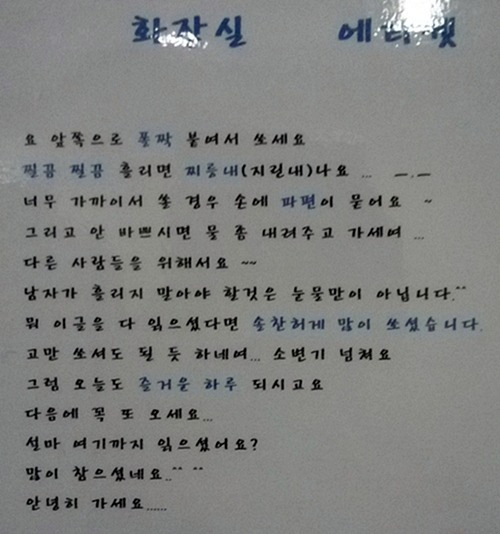 화장실 에티켓
요 앞쪽으로 폴짝 붙여서 쏘세요
찔끔 찔끔 흘리면 찌릇내(지린내)나요 ... ㅡ.ㅡ
너무 가까이서 쏠 경우 손에 파편이 묻어요 ~
그리고 안 바쁘시면 물 좀 내려주고 가세여 ...
다른 사람들을 위해서요 ~~
남자가 흘리지 말아야 할것은 눈물만이 아닙니다.^^
뭐 이글을 다 읽으셨다면 송찬허게 많이 쏘셨습니다.
고만 쏘셔도 될 듯 하네여... 소변기 넘쳐요
그럼 오늘도 즐거운 하루 되시고요
다음에 꼭 또 오세요...
설마 여기까지 읽으셨어요?
많이 참으셨네요..^^ ^^
안녕히 가세요......